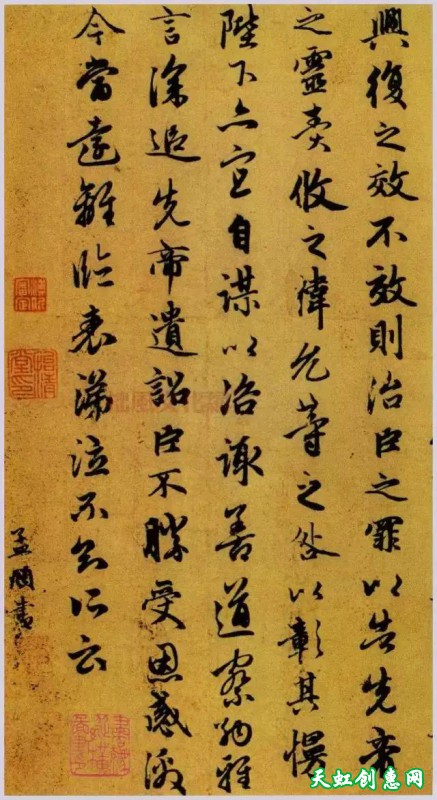 興復之效不效則治臣之罪以告先帝
之靈責攸之禕允等之咎以彰其慢
陛下亦宜自謀以咨諏善道察納雅
言深追先帝遺詔臣不勝受恩感激
今當遠離臨表涕泣不知所云
孟頫書
天虹创惠网